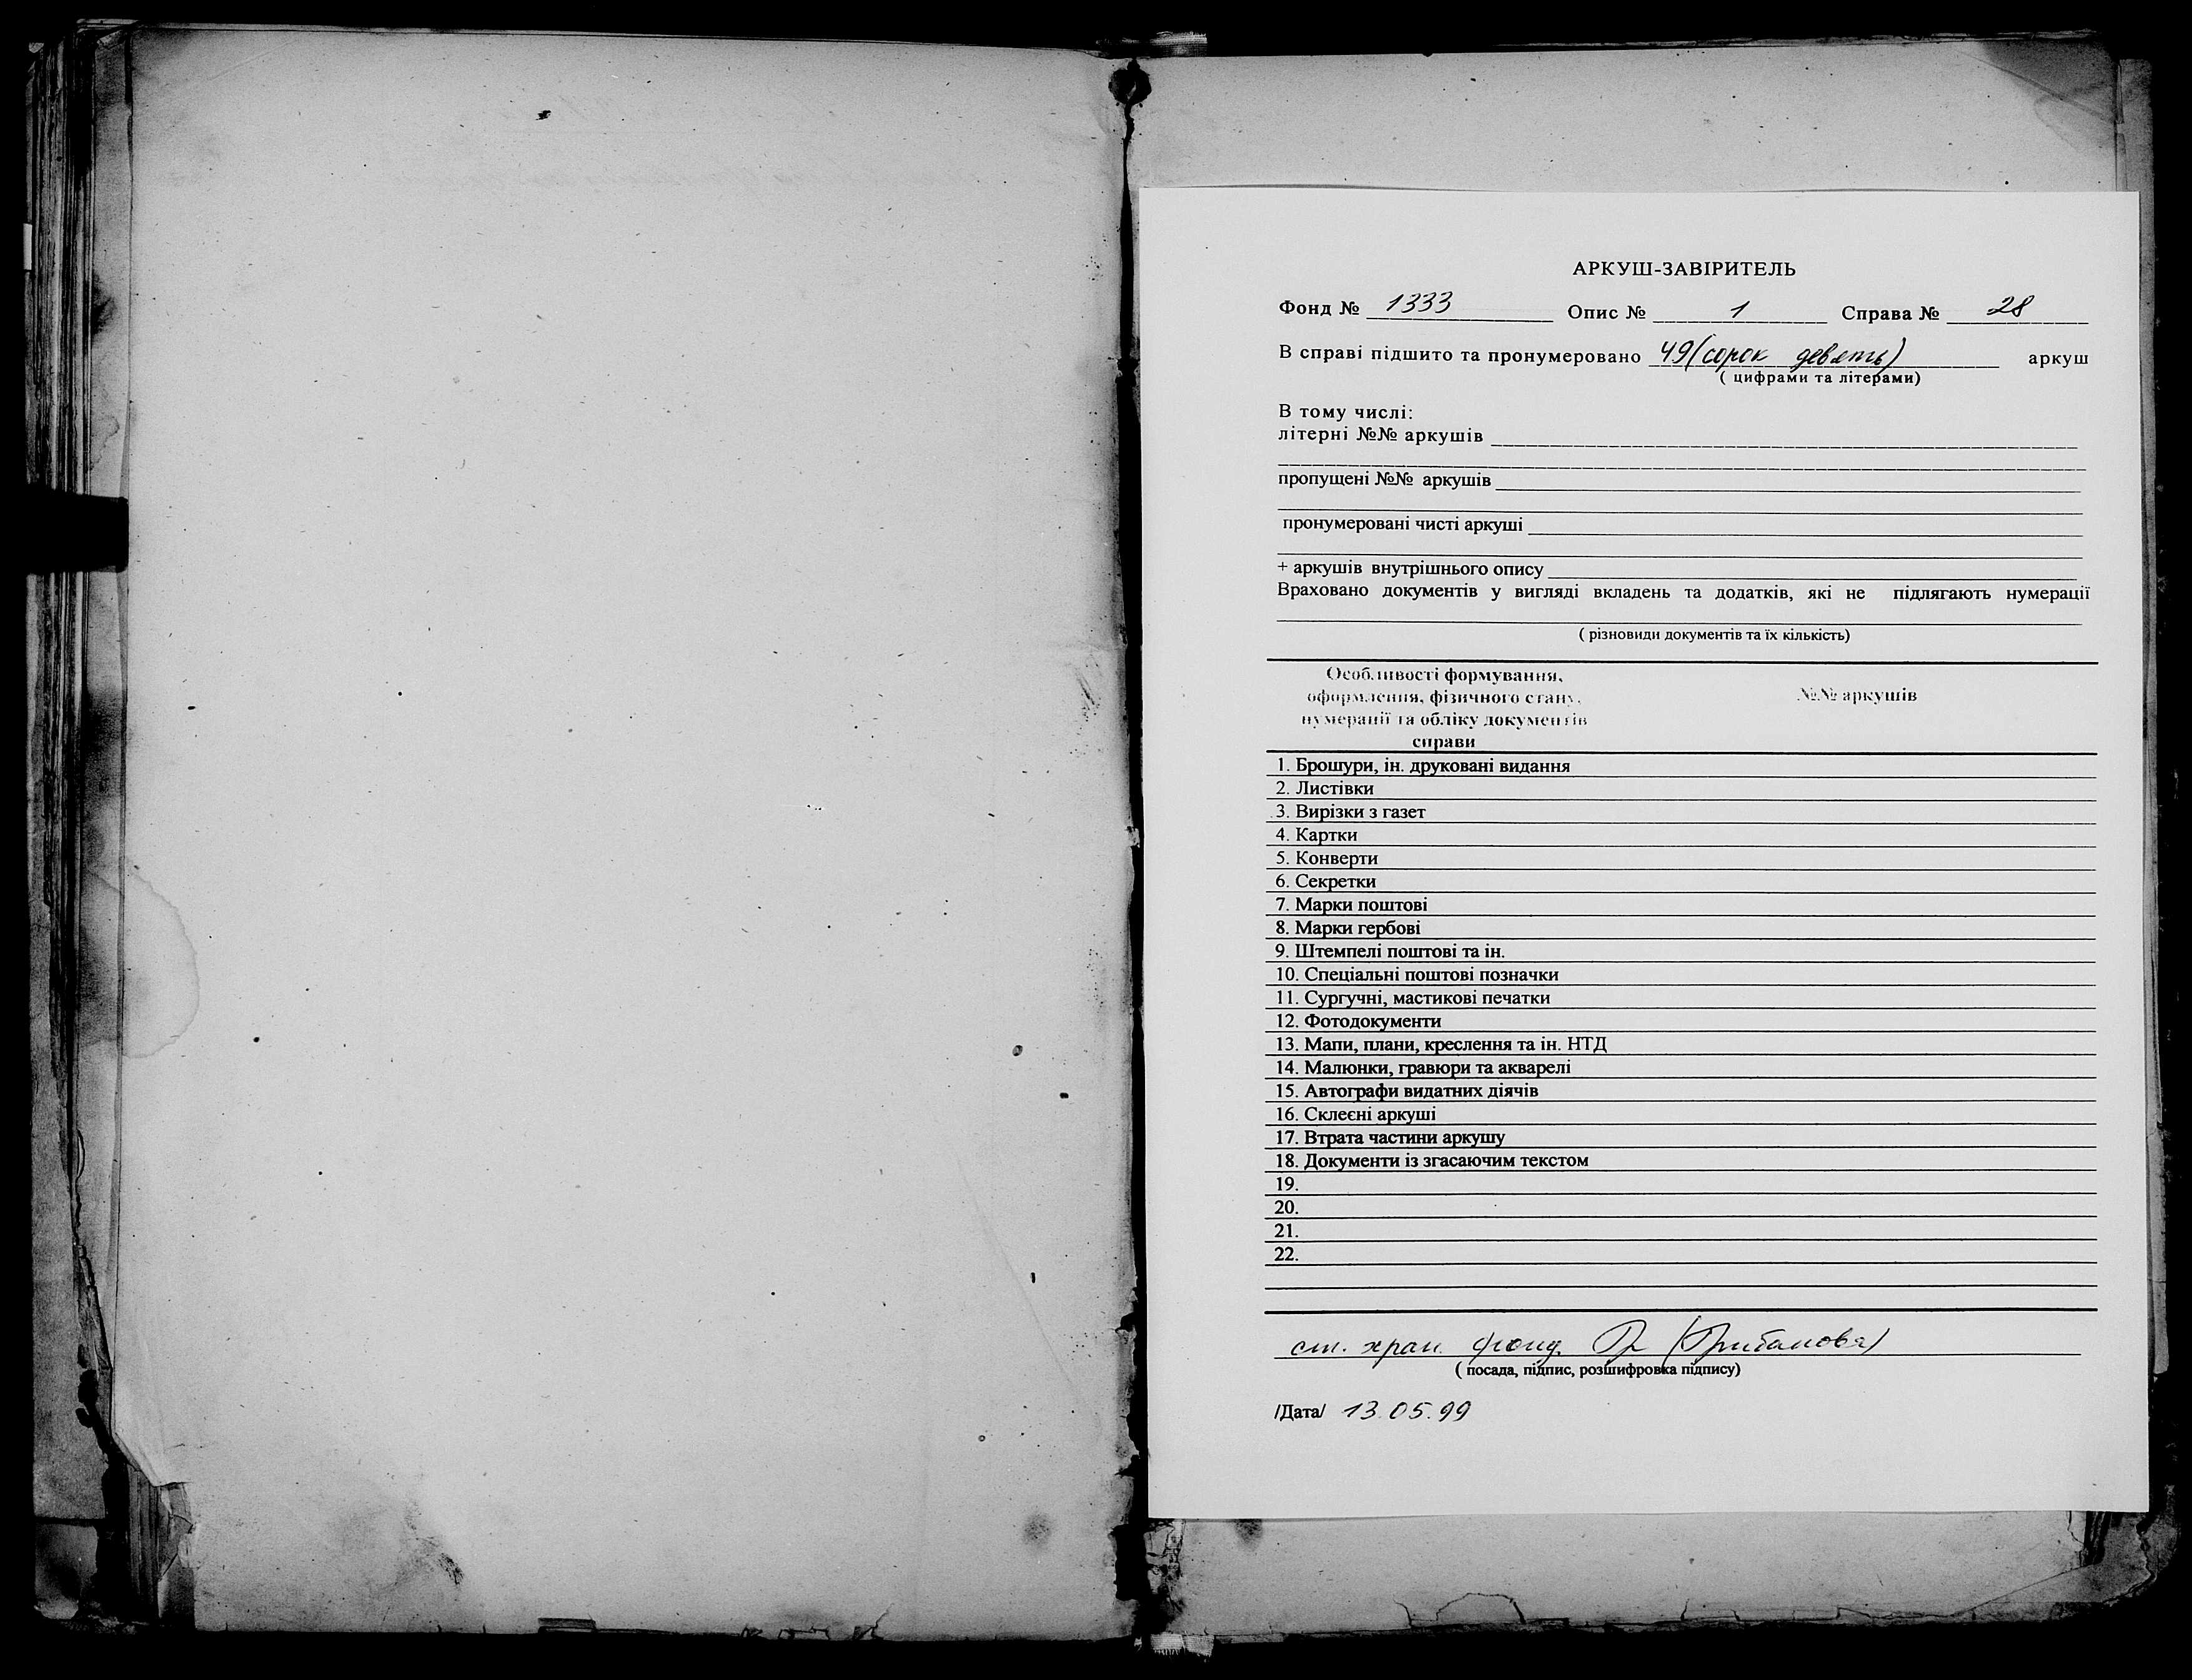 АРКУШ-ЗАВІРИТЕЛЬ
Фонд № 1333 Опис № 1 Справа № 28
В справі підшито та пронумеровано 49 (сорок девять) аркуш
( цифрами та літерами)
В тому числі:
літерні №№ аркушів
пропущені №№ аркушів
пронумеровані чисті аркуші
+ аркушів внутрішнього опису
Враховано документів у вигляді вкладень та додатків, які не підлягають нумерації
( різновиди документів та їх кількість)
Особливості формування,
оформлення, фізичного стану, №№ аркушів
нумерації та обліку документів
справи
1. Брошури, ін. друковані видання
2. Листівки
3. Вирізки з газет
4. Картки
5. Конверти
6. Секретки
7. Марки поштові
8. Марки гербові
9. Штемпелі поштові та ін.
10. Спеціальні поштові позначки
11. Сургучні, мастикові печатки
12. Фотодокументи
13. Мапи, плани, креслення та ін. НТД
14. Малюнки, гравюри та акварелі
15. Автографи видатних діячів
16. Склеєні аркуші
17. Втрата частини аркушу
18. Документи із згасаючим текстом
19.
20.
21.
22.
ст. хран. фонд. (Грибанова)
( посада, підпис, розшифровка підпису)
/Дата/ 13.05.99